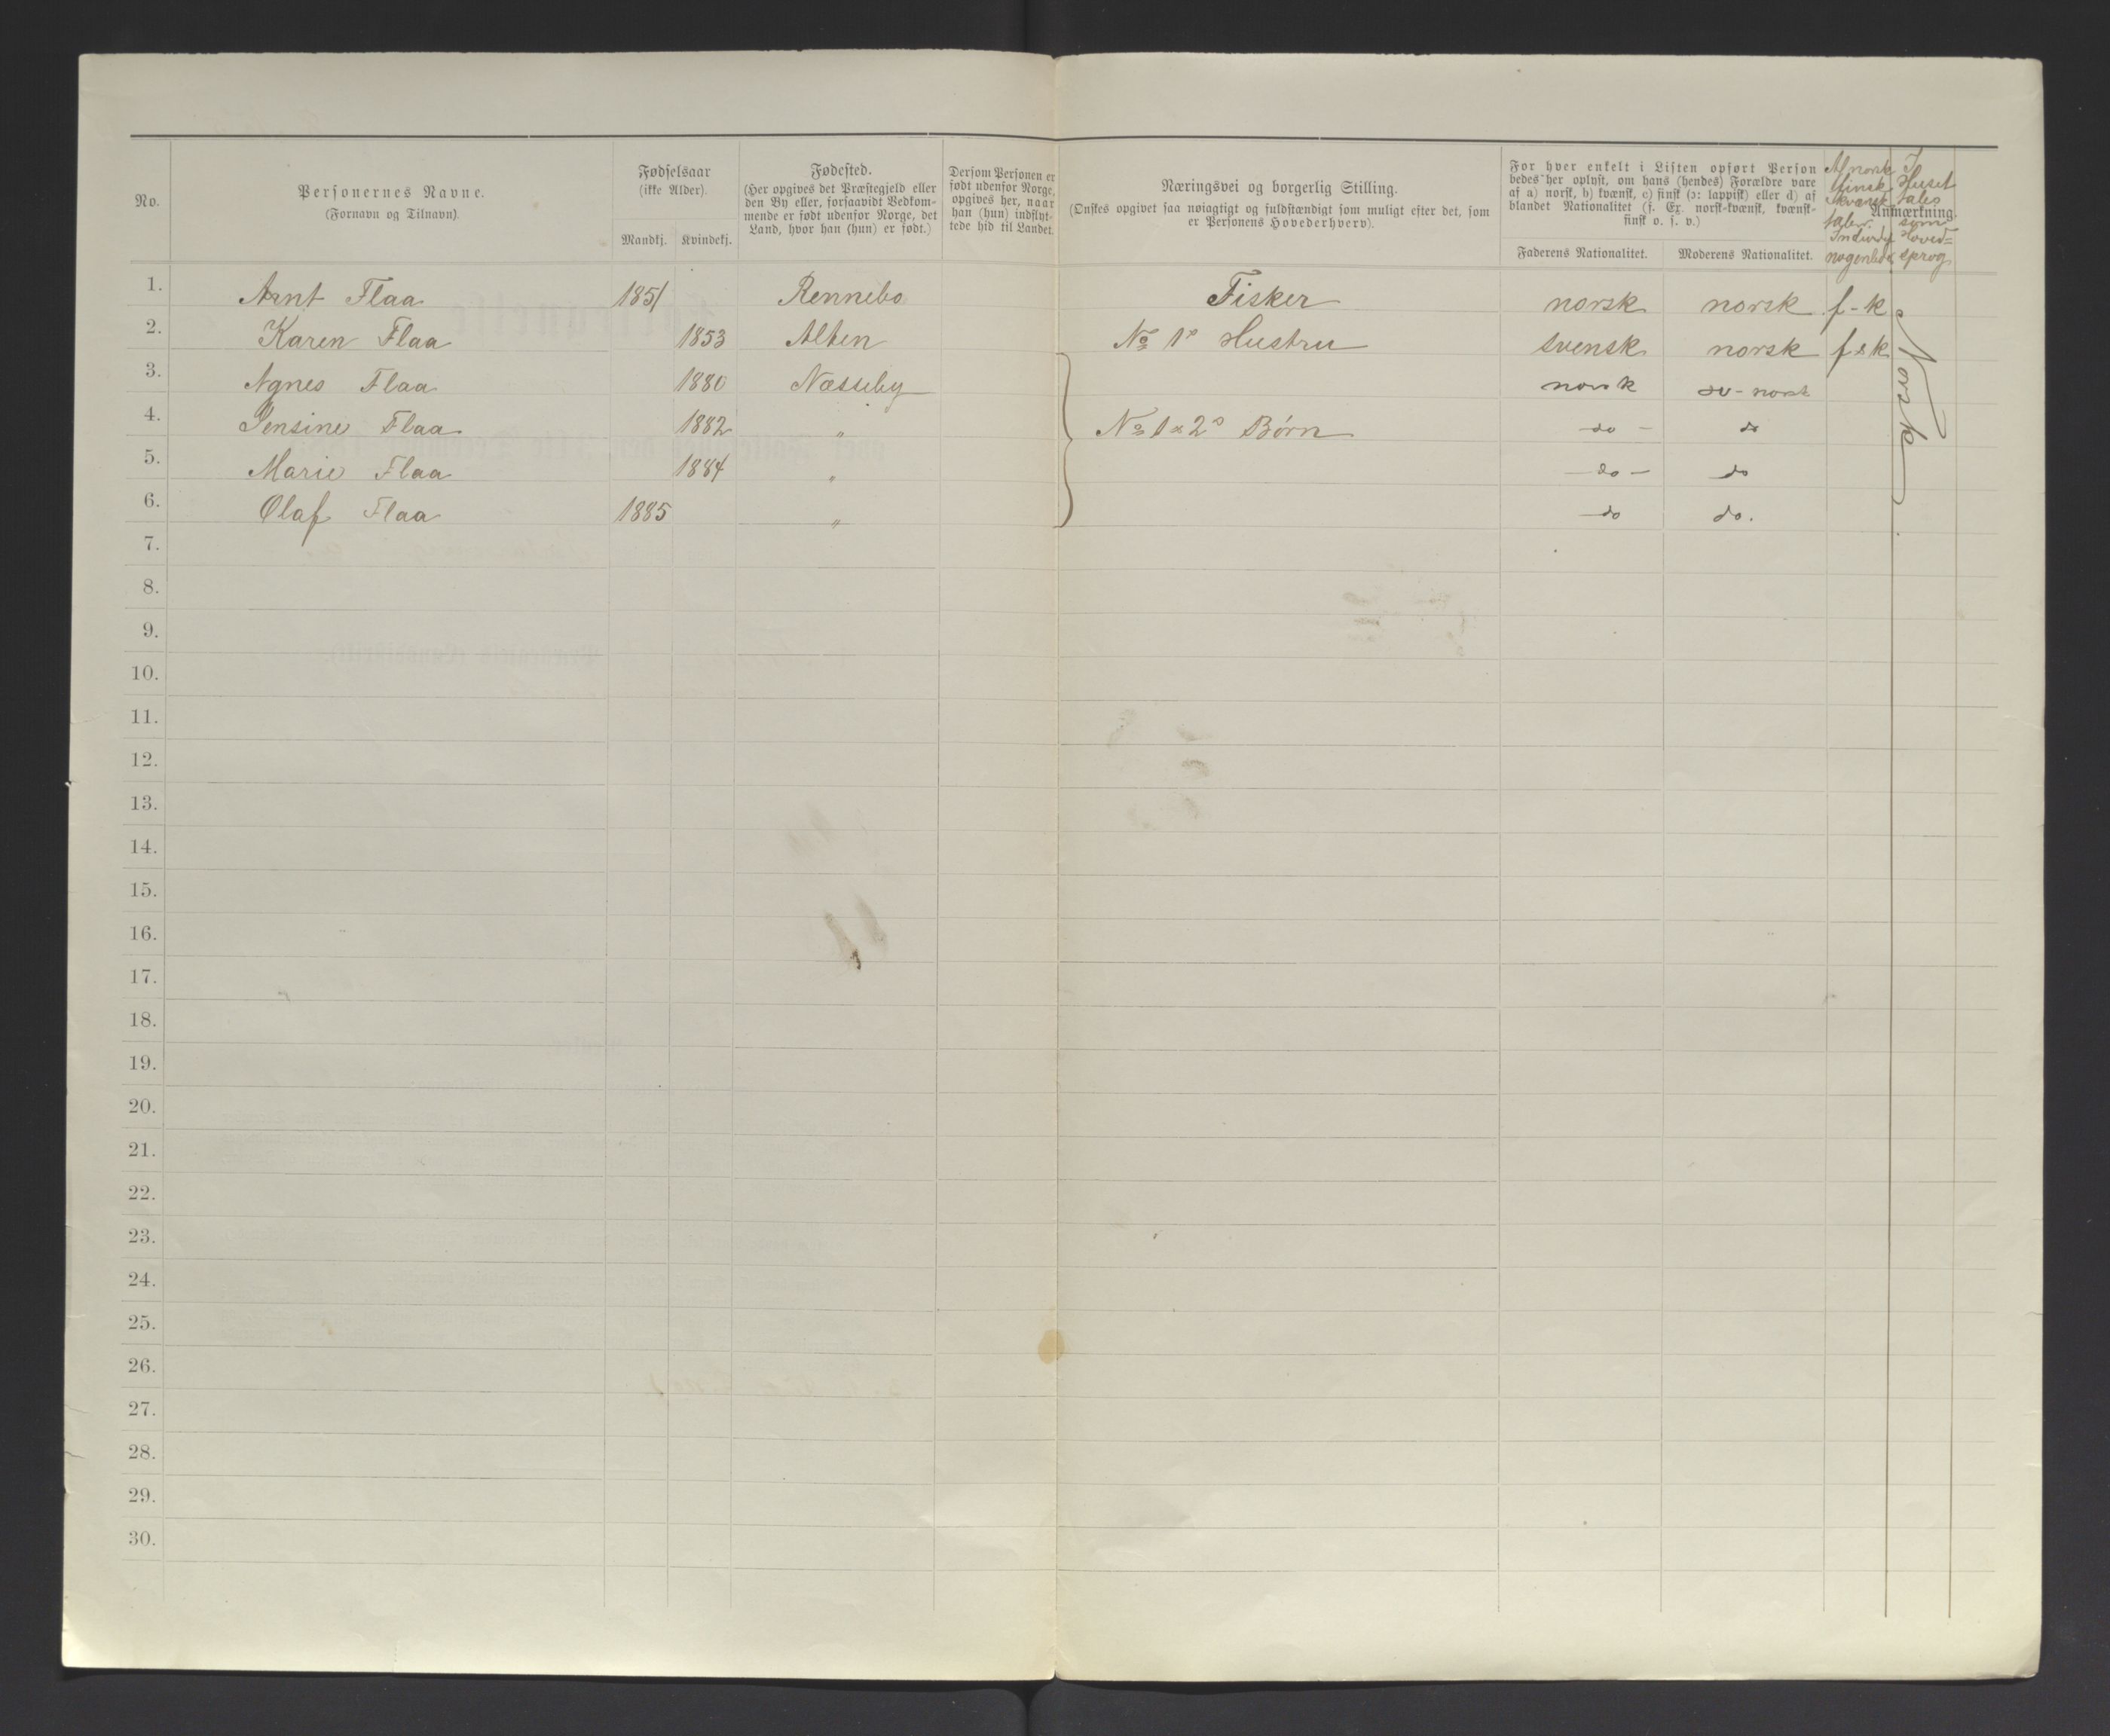 No.
Personernes Navne.
(Fornavn og Tilnavn).
Fødselsaar
(ikke Alder).
Mandkj. Kvindekj.
Fødested.
(Her opgives det Præstegjeld eller
den By eller, forsaavidt Vedkom-
mende er født udenfor Norge, det
Land, hvor han (hun) er født.)
Dersom Personen er
født udenfor Norge,
opgives her, naar
han (hun) indflyt-
tede hid til Landet.
Næringsvei og borgerlig Stilling.
(Ønskes opgivet saa nøiagtigt og fuldstændigt som muligt efter det, som
er Personens Hovederhverv).
For hver enkelt i Listen opført Person
bedes her oplyst, om hans (hendes) Forældre vare
af a) norsk, b) kvænsk, c) finsk (ɔ: lappisk) eller d) af
blandet Nationalitet (f. Ex. norsk-kvænsk, kvænsk-
finsk o. s. v.)
Faderens Nationalitet. Moderens Nationalitet.
Anmærkning.
Af norsk
finsk
kvænsk
taler
I
Huset
tales
som
Hoved=
sprog
1. Arnt Flaa 1851 Rennebo Fisker norsk norsk f-k
2. Karen Flaa 1853 Alten No 1s Hustru svensk norsk f & k
3. Agnes Flaa 1880 Næsseby norsk sv-norsk
4. Jensine Flaa 1882 " No 1 & 2s Børn do do
5. Marie Flaa 1884 " do do
6. Olaf Flaa 1885 " do do.
Norsk
7.
8.
9.
10.
11.
12.
13.
14.
15.
16.
17.
18.
19.
20.
21.
22.
23.
24.
25.
26.
27.
28.
29.
30.